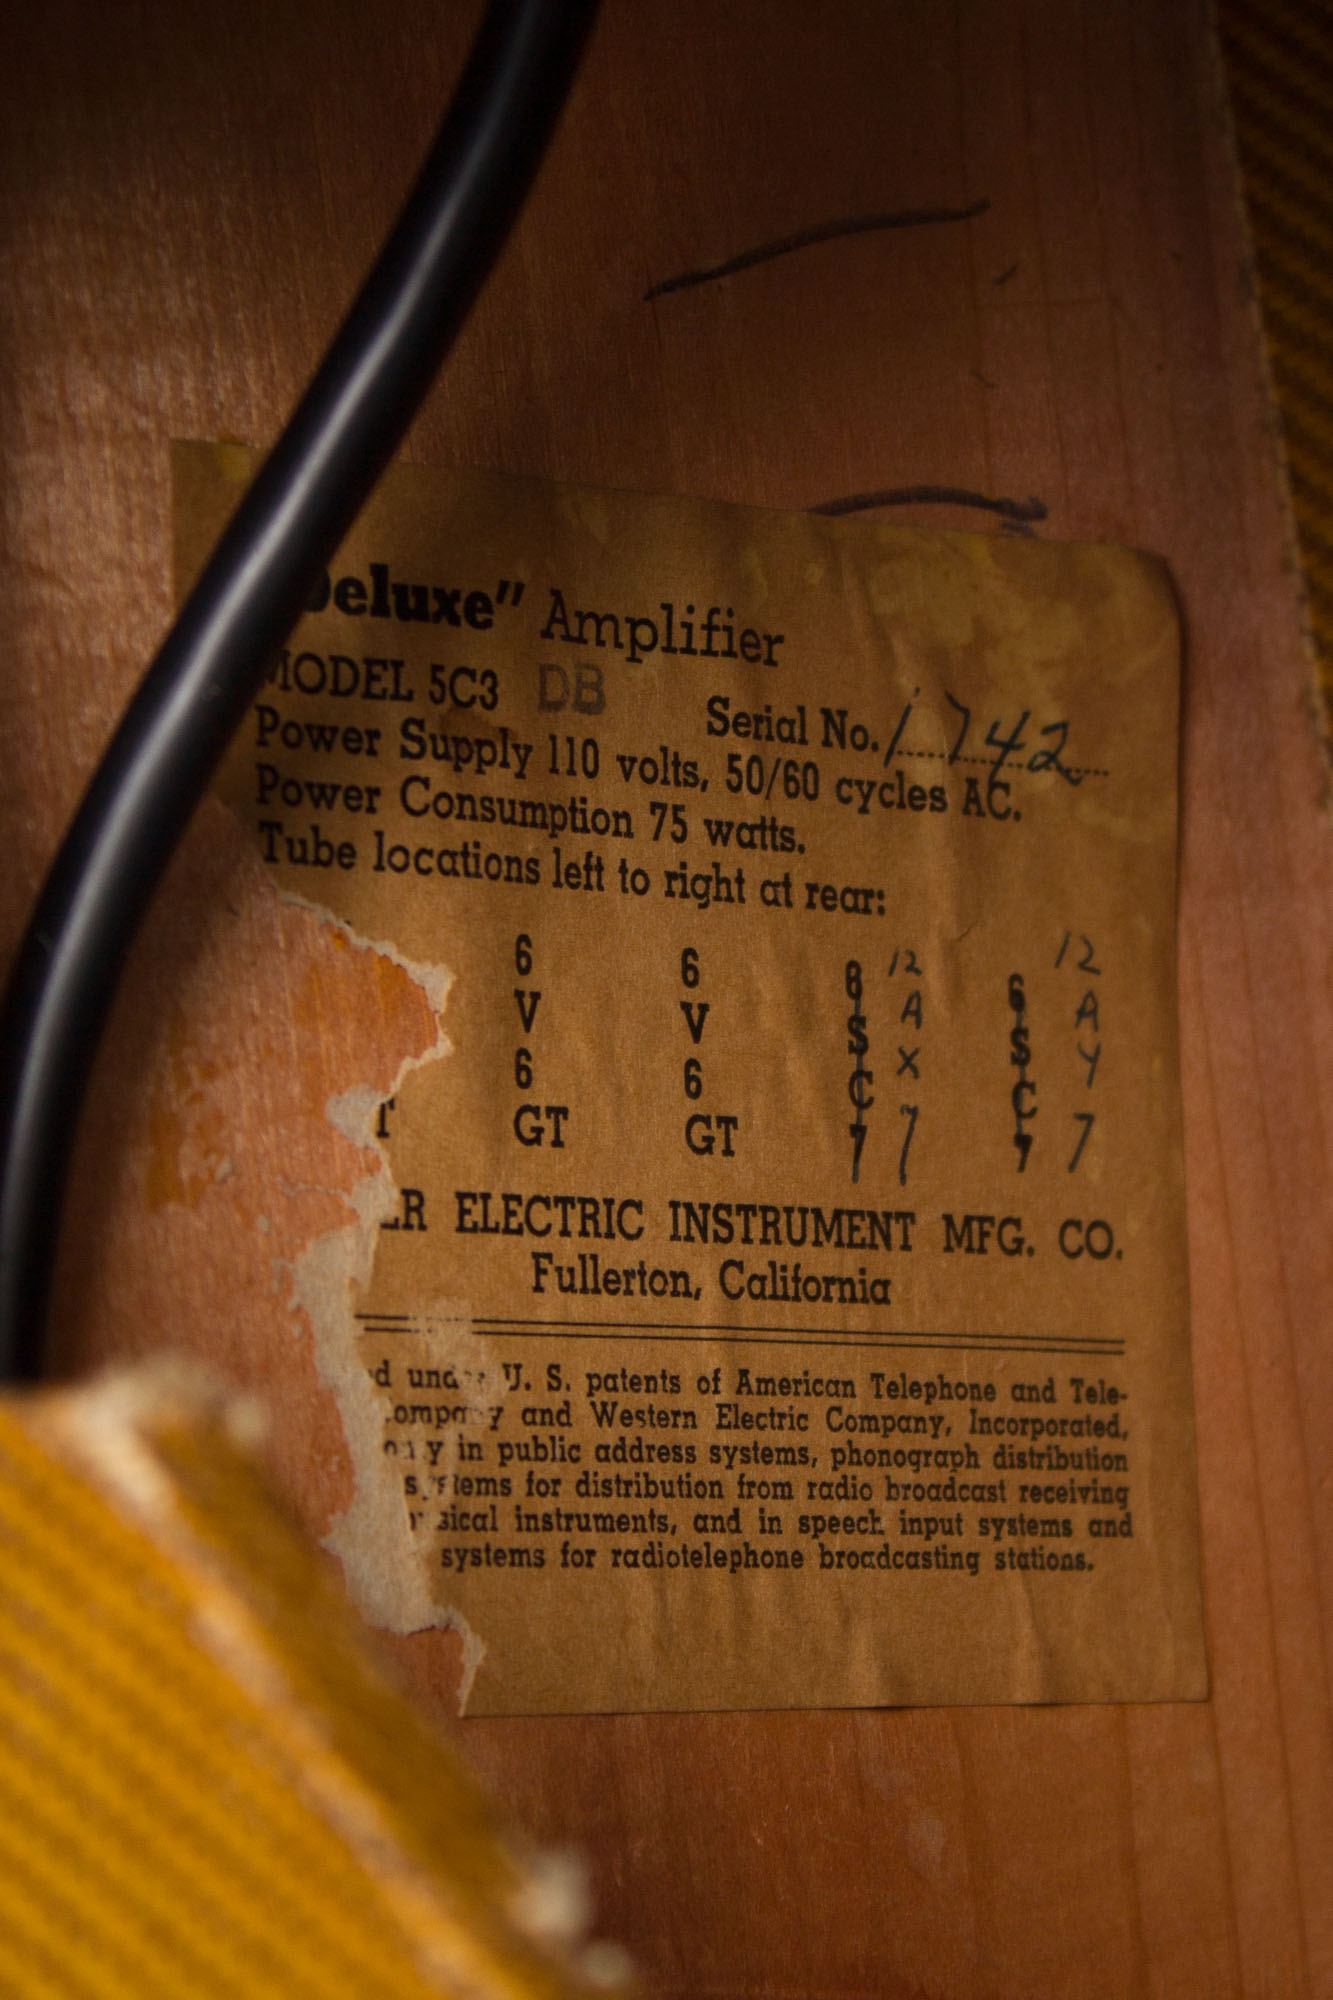 Deluxe" Amplifier
MODEL 5C3 DB Serial No. 1742
Power Supply 110 volts, 50/60 cycles AC.
Power Consumption 75 watts.
Tube locations left to right at rear:
6 6 6 12 6 12
V V S A S A
6 6 C X C Y
T GT GT 7 7 7 7
ER ELECTRIC INSTRUMENT MFG. CO.
Fullerton, California
d under U. S. patents of American Telephone and Tele-
ompany and Western Electric Company, Incorporated,
only in public address systems, phonograph distribution
systems for distribution from radio broadcast receiving
sical instruments, and in speech input systems and
systems for radiotelephone broadcasting stations.